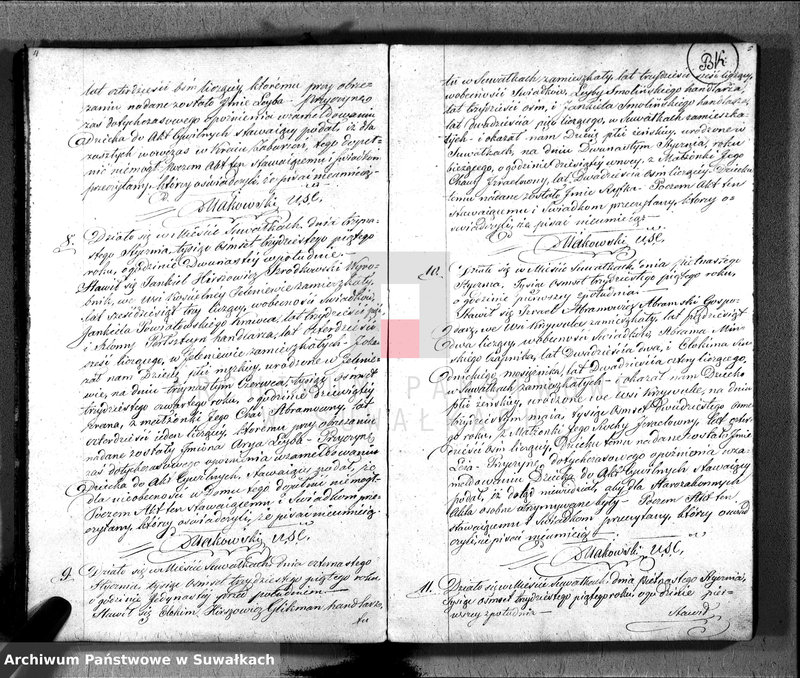 lat czterdzieści ośm liczący, któremu przy obrze-
zaniu nadane zostało Imie Leyba - Przyczyną
zaś dotychczasowego opóźnienia w zameldowaniu
Dziecka do Akt Cywilnych Stawaiący podał, iż dla
nić niemógł Poczem Akt ten Stawaiącemu i Świadkom
przeczytany, którzy oświadczyli, że pisać nieumieią
Makowski U.S.C.
8. Działo się w Mieście Suwałkach, dnia trzyna-
stego Stycznia, tysiąc ośmset trzydziestego piątego
roku, o godzinie Dwunastey w południe -
Stawił się Jankiel Herszowicz Wyro-
bnik, we wsi zamieszkały,
lat sześćdziesiąt trzy liczący, w obecności Świadków,
Jankiela Krawca, lat trzydzieści
i handlarza, lat czterdzieści
sześć liczącego, w Jeleniewie zamieszkałych - i oka-
zał nam Dziecię płci męzkiey, urodzone w Jelenie-
wie, na dniu trzynastym Czerwca, tysiąc ośmset
trzydziestego czwartego roku, o godzinie dziewiątey
zrana, z małżonki Jego Chai Abramowny, lat
czterdzieści ieden liczącey, któremu przy obrzezaniu
nadane zostały Imiona Leyba - Przyczyną
zaś dotychczasowego opóźnienia w zameldowaniu
Dziecka do Akt Cywilnych, Stawaiący podał, że
dla nieobecności w Domu tego dopełnić niemógł -
Poczem Akt ten Stawaiącemu i Świadkom prze-
czytany, którzy oświadczyli, że pisać nieumieią
Makowski U.S.C.
9. Działo się w Mieście Suwałkach, dnia czternastego
Stycznia, tysiąc ośmset trzydziestego piątego roku,
o godzinie Jedynastey przed południem -
Stawił się Elokim Herszowicz Glikman, handlarz,
tu
Bk
tu w Suwałkach zamieszkały, lat trzydzieści sześć liczący,
w obecności Świadków, Leyby Smolińskiego handlarza,
lat trzydzieści ośm, i Jankiela Smolińskiego handlarza,
lat dwadzieścia pięć liczącego, w Suwałkach zamieszka-
łych - i okazał nam Dziecię płci żeńskiey, urodzone w
Suwałkach, na dniu Dwunastym Stycznia, roku
bieżącego, o godzinie dziesiątey w nocy, z Małżonki Jego
Chany Izraelowny, lat Dwadzieścia ośm liczącey, Dziecku
temu nadane zostało Imie - Poczem Akt ten
Stawaiącemu i Świadkom przeczytany, którzy o-
świadczyli, że pisać nieumieią
Makowski U.S.C.
10. Działo się w Mieście Suwałkach, dnia piętnastego
Stycznia, tysiąc ośmset trzydziestego piątego roku,
o godzinie pierwszey z południa -
Stawił się Izrael Abramowicz Abramski Gospo-
darz, we wsi Krzywulce zamieszkały, lat pięćdziesiąt
dwa liczący, w obecności Świadków, Abrama
lat Dwadzieścia dwa, i Elokima
lat Dwadzieścia cztery liczącego,
w Suwałkach zamieszkałych - i okazał nam Dziecko
płci żeńskiey, urodzone we wsi Krzywulce, na dniu
trzydziestym Maja, tysiąc ośmset Dwudziestego osme-
go roku, z Małżonki Jego Rochy Izraelowny, lat czter-
dzieści ośm liczącey, Dziecku temu nadane zostało Imie
- Przyczyną dotychczasowego opóźnienia w za-
meldowaniu Dziecka do Akt Cywilnych Stawaiący
podał, iż dotąd niewiedział, aby dla Starozakonnych
Akta osobne utrzymywane były - Poczem Akt ten
Stawaiącemu i Świadkom przeczytany, którzy oświad-
czyli, że pisać nieumieią
Makowski U.S.C.
11. Działo się w Mieście Suwałkach, dnia piętnastego Stycznia,
tysiąc ośmset trzydziestego piątego roku, o godzinie pier-
wszey z południa -
Stawił
Archiwum Państwowe w Suwałkach